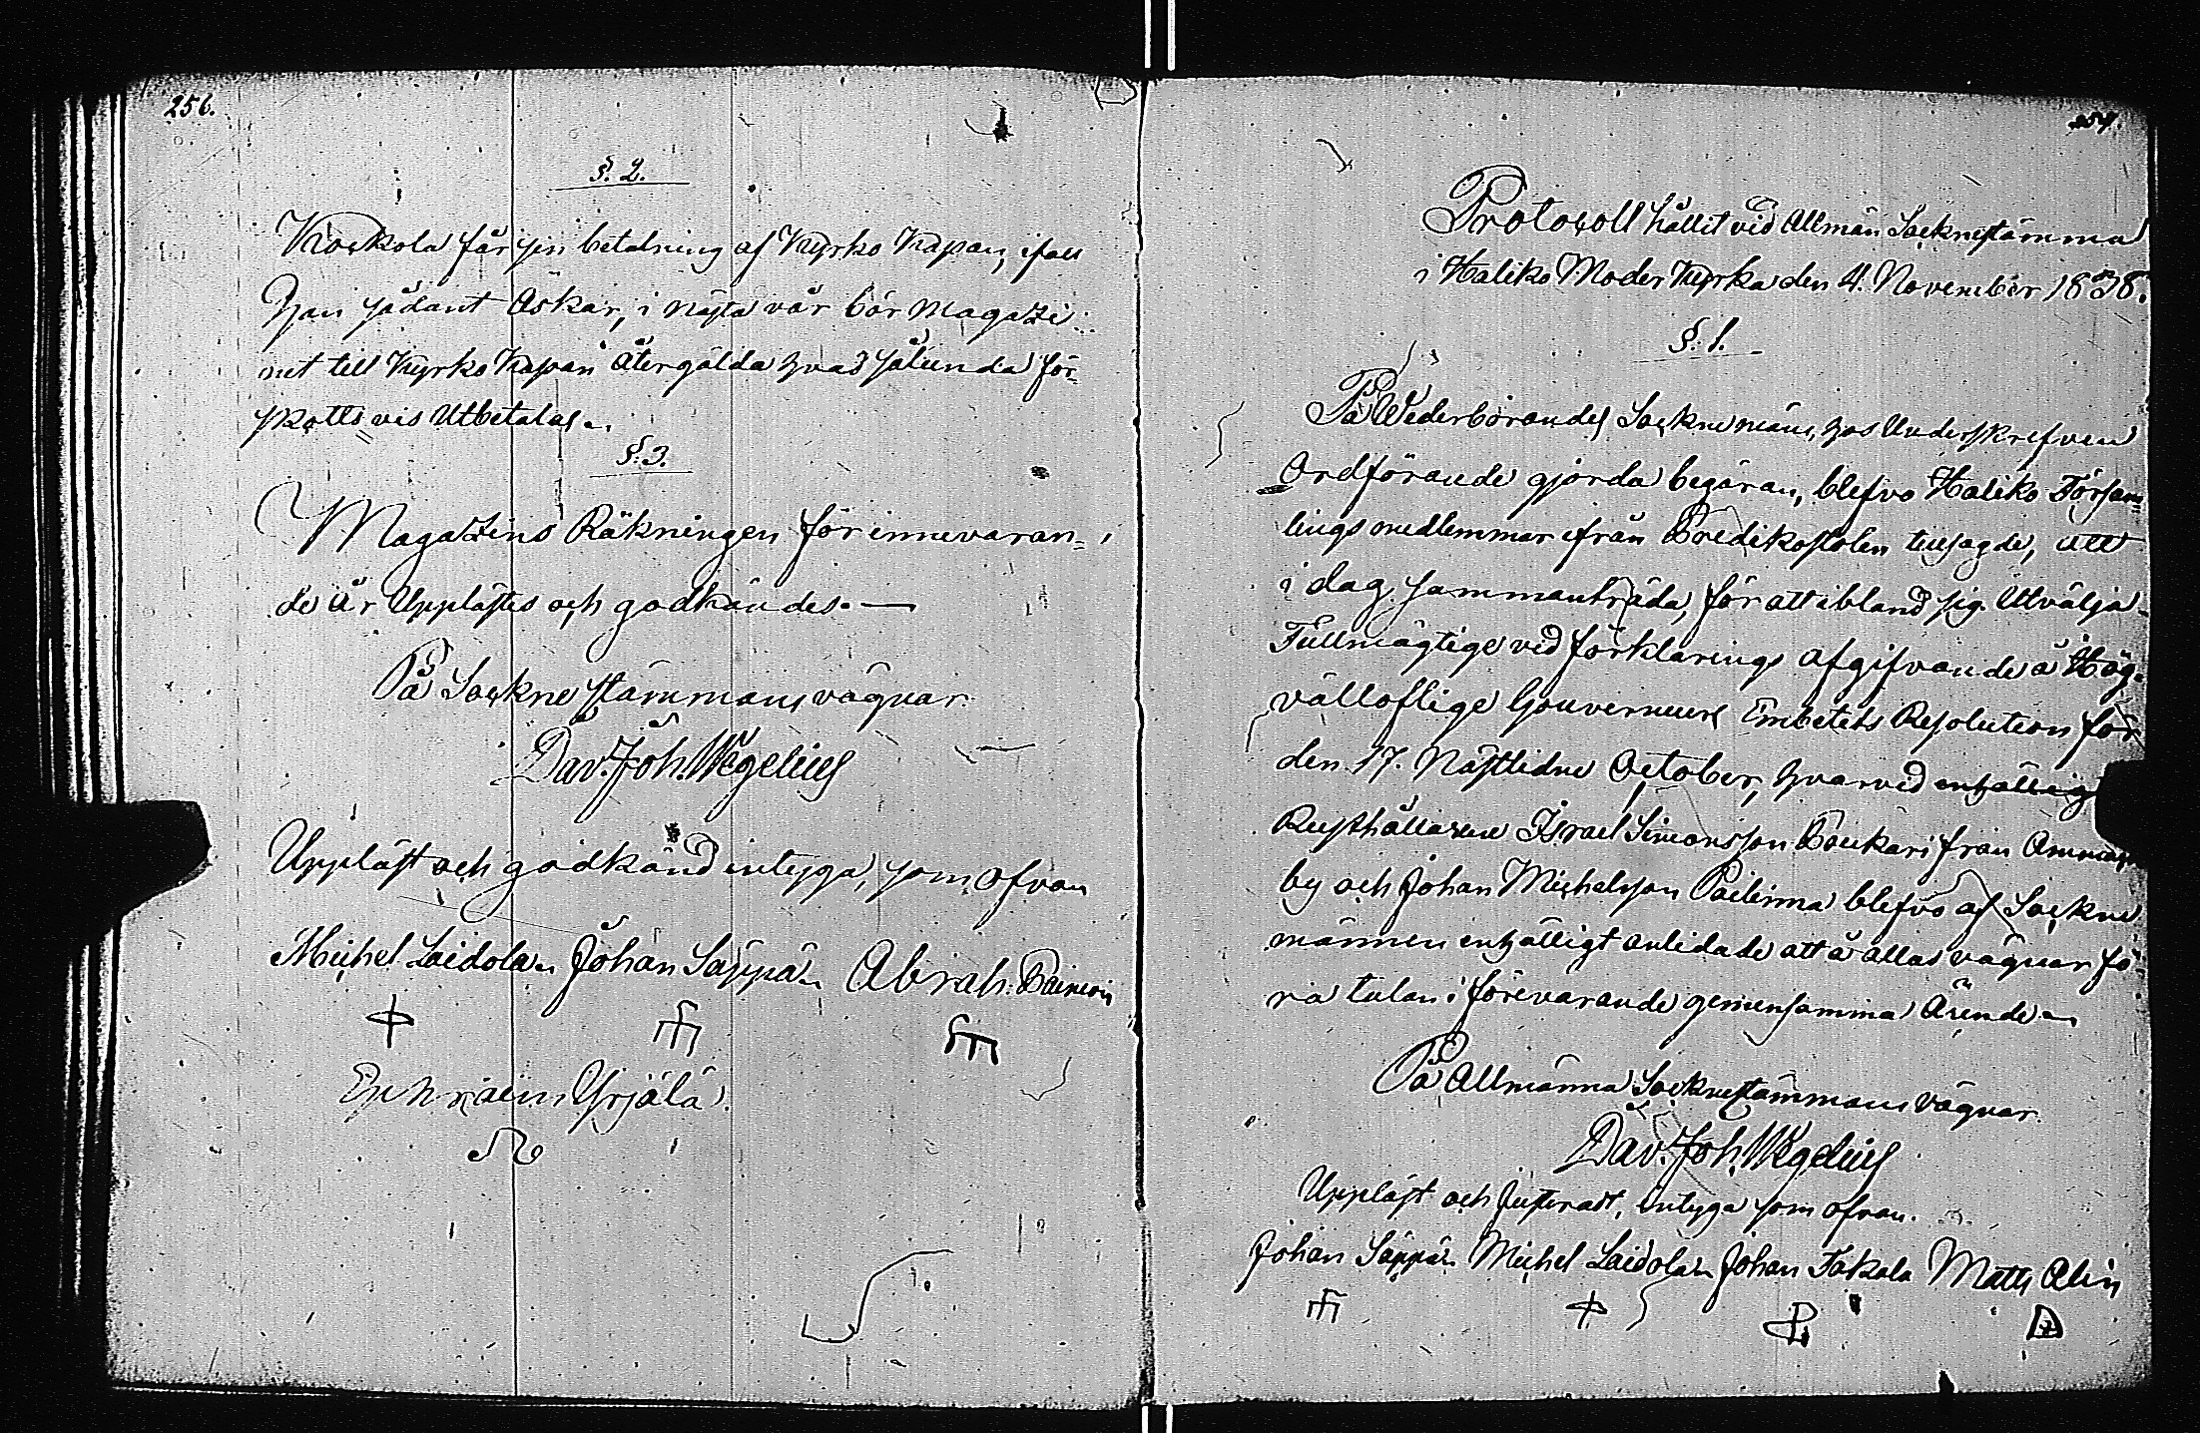 256.
§. 2.
Kockola får sin betalning af Kyrko Kassan, ifall
Han sådant Äskar, i nästa vår bör Magazi-
net till Kyrko Kassan återgälda hvad sålunda för-
skotts vis Utbetalas.
§. 3.
Magazins Räkningen för innevaran-
de år Upplästes och godkändes. —
På Sockne stämmans vägnar
Dav. Joh. Wegelius
Uppläst och godkänd intyga, som ofvan
Michel Laidola. Johan Säppä. Abrah.
Ephraim Yrjälä.
257.
Protocoll hållit vid Allmän Socknestämma
i Haliko Moder Kyrka den 4. November 1838.
§. 1.
På Wederbörandes Sockne mäns, hos Underskrefven
Ordförande gjorda begäran, blefvo Haliko Försam-
lings medlemmar ifrån Predikostolen tillsagde, att
i dag sammanträda, för att ibland sig Utvälja
Fullmägtige vid förklarings afgifvande å Hög-
välloflige Gouverneurs Embetets Resolution för
den 17. Nästlidne October, hvarvid enhällig
Rusthållarene Israel Simonsson Paukari från Ammas-
by och Johan Michelsson Pailinna blefvo af Sockne
männen enhälligt anlidade att å allas vägnar fö
ra talan i förevarande gemensamma Ärende.
På Allmänna Socknestämmans vägnar
Dav. Joh. Wegelius
Uppläst och Justeradt, intyga som ofvan.
Johan Säppä. Michel Laidola. Johan Tokola Matts Alin